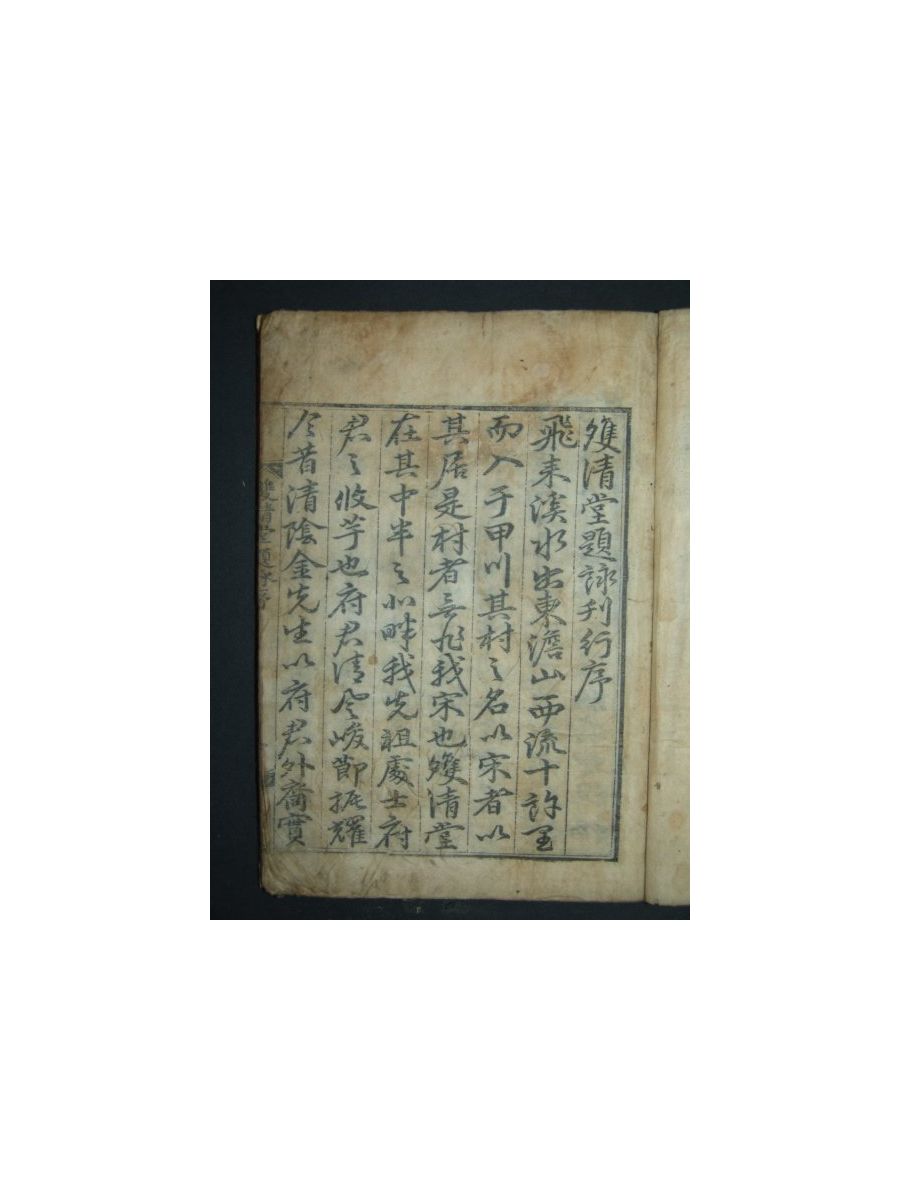 雙清堂題詠刊行序
飛來溪水出東澹山西流十許里
而入于甲川其村之名以宋者以
其居是村者無非我宋也雙清堂
在其中半之北畔我先祖處士府
君之攸芋也府君清風峻節振耀
今昔清陰金先生以府君外裔實
雙清堂題詠序